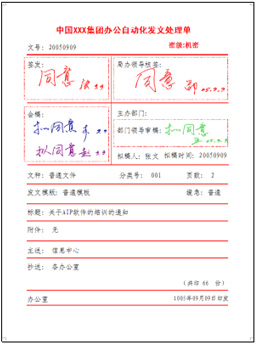 中国XXX集团办公自动化发文处理单
文号：20050909 密级:机密
签发： 局办领导核签：
同意 同意
会稿： 主办部门：
拟同意 部门领导审稿： 拟同意
拟同意
拟稿人：张文 拟稿时间：20050909
文种：普通文件 分类号：001 页数：2
发文模板：普通模板 缓急：普通
标题：关于AIP软件的培训的通知
附件：无
主送：信息中心
抄送：各办公室
（共印 66 份）
办公室 1005年09月09日印发